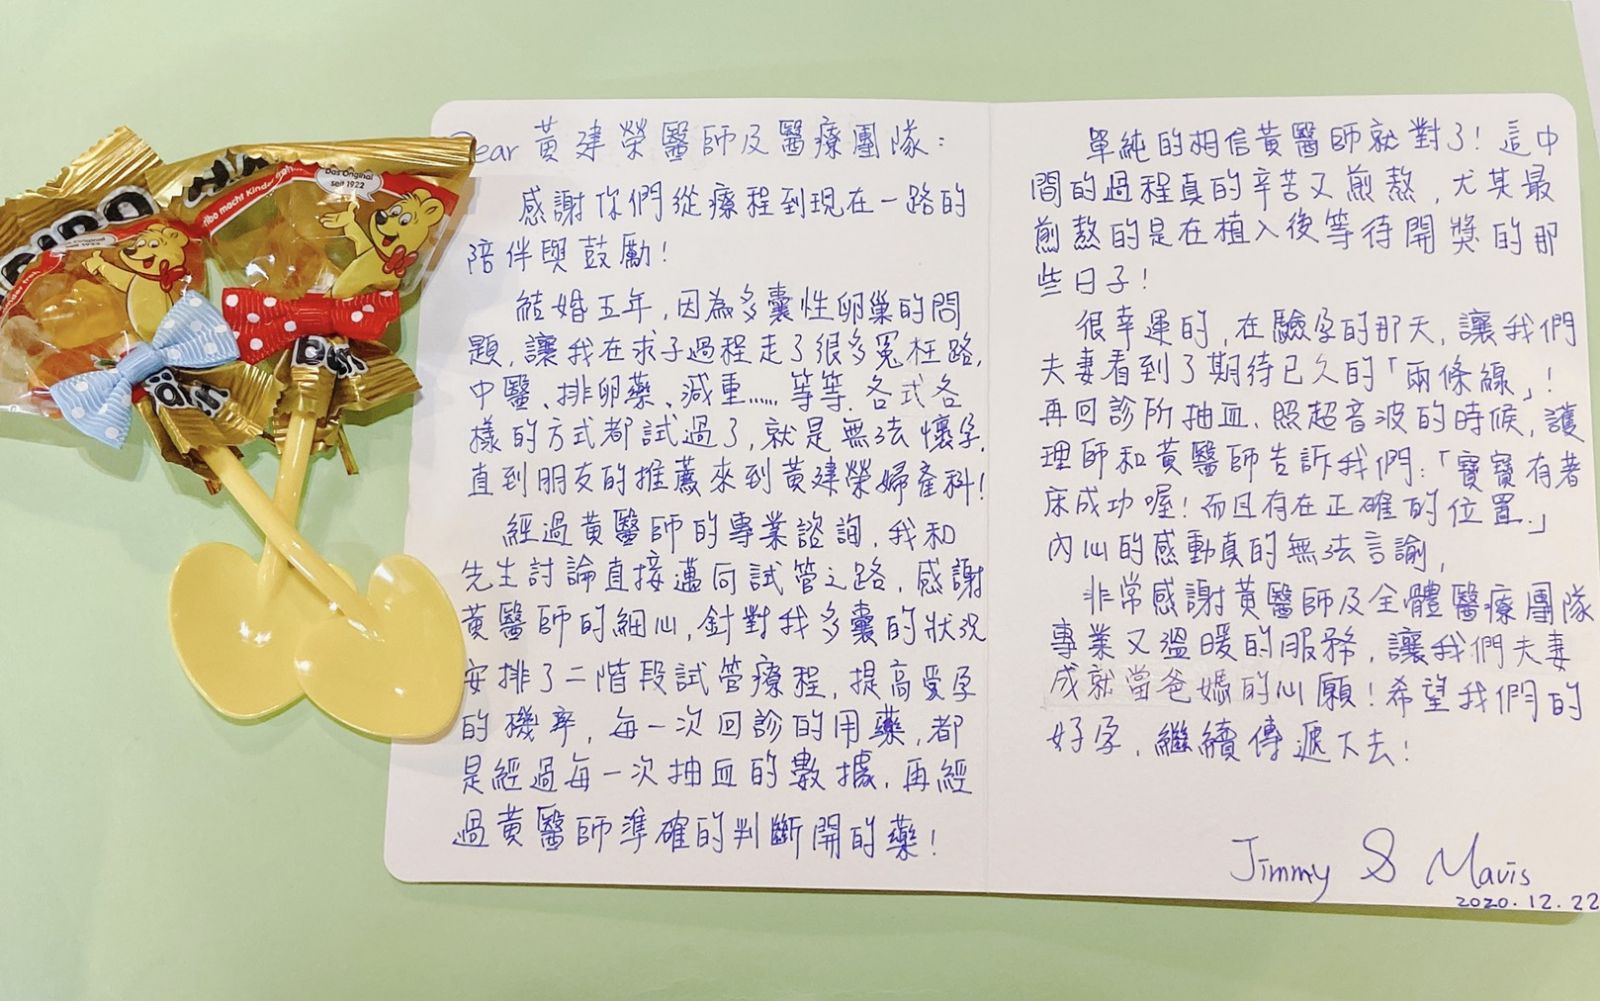 Dear 黃建榮醫師及醫療團隊：
感謝你們從療程到現在一路的
陪伴與鼓勵！
結婚五年，因為多囊性卵巢的問
題，讓我在求子過程走了很多冤枉路，
中醫、排卵藥、減重……等等，各式各
樣的方式都試過了，就是無法懷孕，
直到朋友的推薦來到黃建榮婦產科！
經過黃醫師的專業諮詢，我和
先生討論直接邁向試管之路，感謝
黃醫師的細心，針對我多囊的狀況
安排了二階段試管療程，提高受孕
的機率，每一次回診的用藥，都
是經過每一次抽血的數據，再經
過黃醫師準確的判斷開的藥！
單純的相信黃醫師就對了！這中
間的過程真的辛苦又煎熬，尤其最
煎熬的是在植入後等待開獎的那
些日子！
很幸運的，在驗孕的那天，讓我們
夫妻看到了期待已久的「兩條線」！
再回診所抽血、照超音波的時候，護
理師和黃醫師告訴我們：「寶寶有著
床成功喔！而且存在正確的位置。」
內心的感動真的無法言諭，
非常感謝黃醫師及全體醫療團隊
專業又溫暖的服務，讓我們夫妻
成就當爸媽的心願！希望我們的
好孕，繼續傳遞下去！
Jimmy & Mavis
2020.12.22
Das Original
seit 1922
Das Original
seit 1922